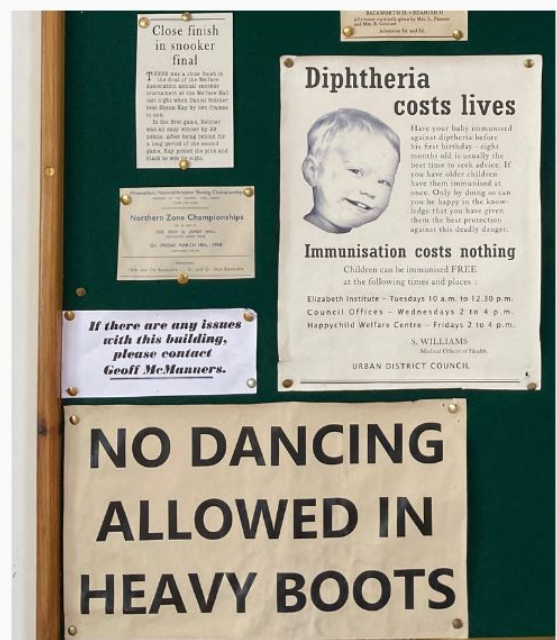 Close finish
in snooker
final
THERE was a close finish in
the final of the Welfare
Association annual snooker
tournament at the Welfare Hall
last night when Daniel Belcher
beat Simon Kay by two frames
to one.
In the first game, Belcher
was an easy winner by 39
points. After being behind for
a long period of the second
game, Kay potted the pink and
black to win by eight.
BACKWORTH II. v SEAHAM II
Admission
Northern Zone Championships
THE NEW ST. JAMES HALL
On FRIDAY MARCH
If there are any issues
with this building,
please contact
Geoff McManners.
Diphtheria
costs lives
Have your baby immunised
against diptheria before
his first birthday - eight
months old is usually the
best time to seek advice. If
you have older children
have them immunised at
once. Only by duing so can
you be happy in the know-
ledge that you have given
them the best protection
against this deadly danger.
Immunisation costs nothing
Children can be immunised FREE
at the following times and places :
Elizabeth Institute – Tuesdays 10 a.m. to 12.30 p.m.
Council Offices – Wednesdays 2 to 4 p.m.
Happychild Welfare Centre – Fridays 2 to 4 p.m.
S. WILLIAMS
Medical Officer of Health.
URBAN DISTRICT COUNCIL
NO DANCING
ALLOWED IN
HEAVY BOOTS